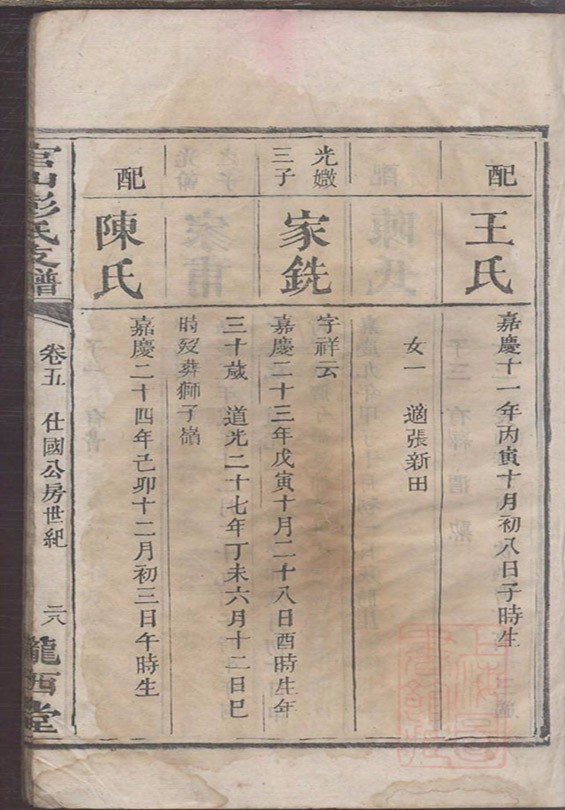 配
王氏
嘉慶十一年丙寅十月初八日子時生
女一 適張新田
光嬓
三子
家銑
字祥云
嘉慶二十三年戊寅十月二十八日酉時生年
三十歲 道光二十七年丁未六月十二日巳
時歿葬獅子嶺
配
陳氏
嘉慶二十四年己卯十二月初三日午時生
官山彭氏支譜
卷五 仕國公房世紀
六
隴西堂